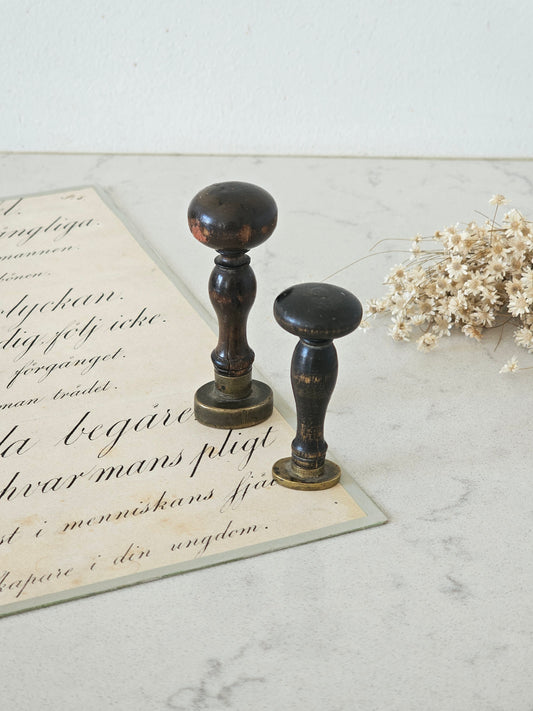 ngliga.
mannen.
lyckan.
dig följ icke.
förgänget.
man trädet.
da begäre
hvar mans pligt
st i menniskans själ
skapare i din ungdom.